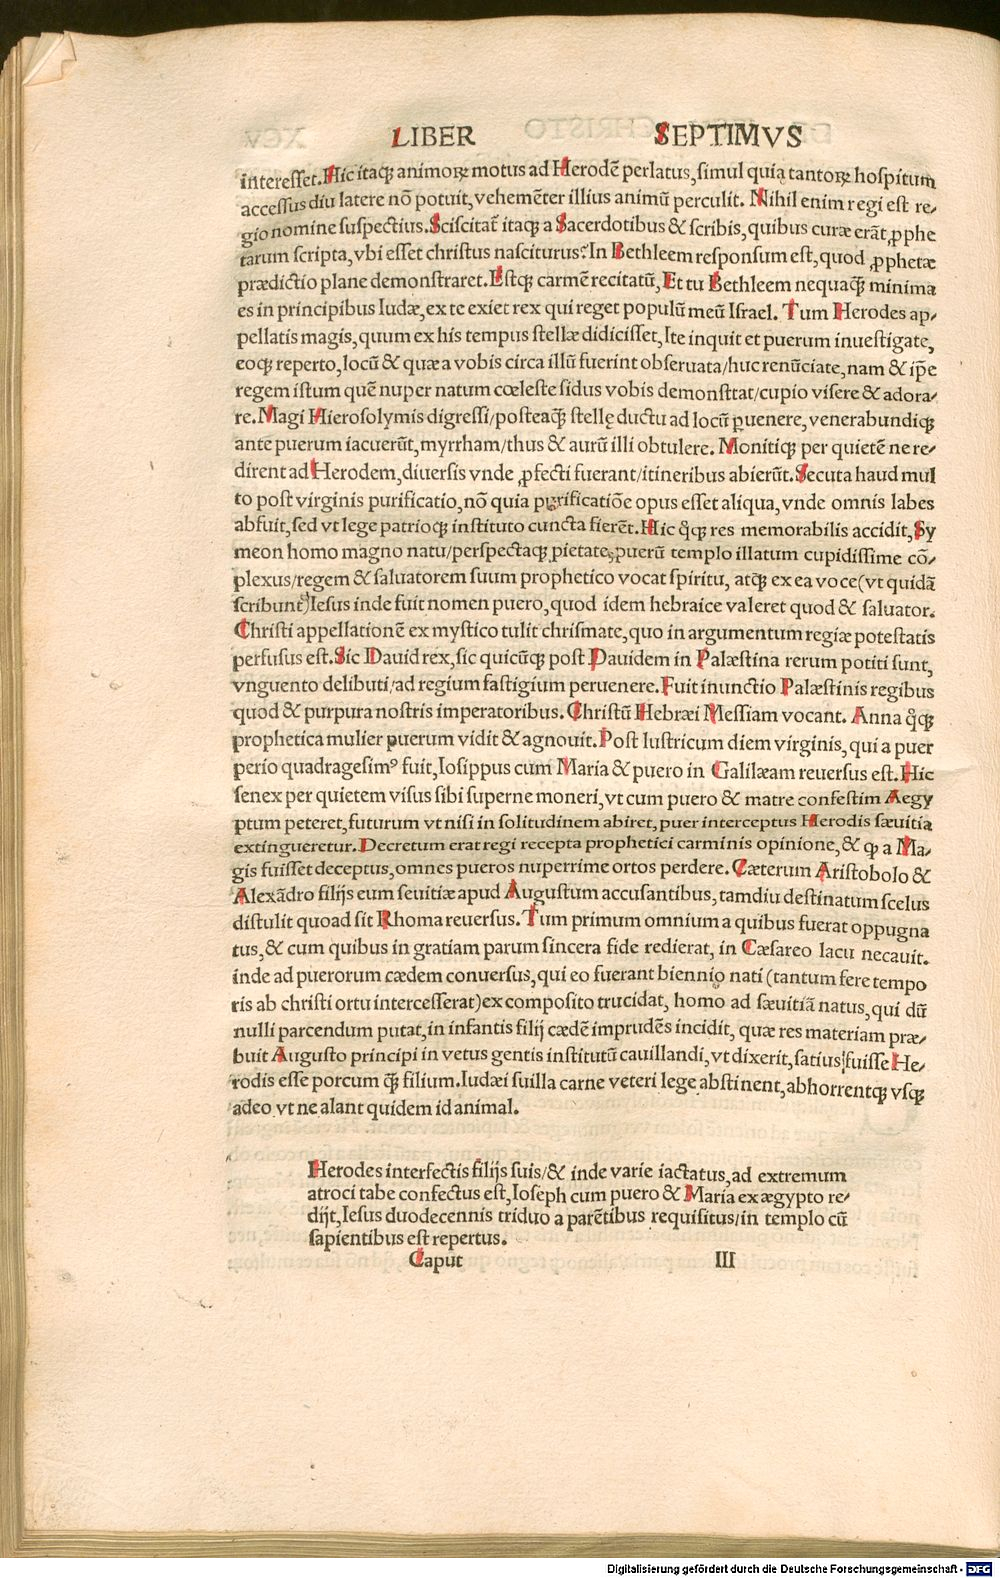 LIBER SEPTIMVS
interesset. Hic itaqꝫ animoꝝ motus ad Herodē perlatus, simul quia tantoꝝ hospitum
accessus diu latere nō potuit, vehemēter illius animū perculit. Nihil enim regi est re/
gio nomine suspectius. Sciscitať itaqꝫ a Sacerdotibus & scribis, quibus curæ erāt, ꝓphe
tarum scripta, vbi esset christus nasciturus? In Bethleem responsum est, quod ꝓphetæ
prædictio plane demonstraret. Estqꝫ carmē recitatū, Et tu Bethleem nequaꝙ̄ minima
es in principibus Iudæ, ex te exiet rex qui reget populū meū Israel. Tum Herodes ap/
pellatis magis, quum ex his tempus stellæ didicisset, Ite inquit et puerum inuestigate,
eoqꝫ reperto, locū & quæ a vobis circa illū fuerint obseruata/huc renūciate, nam & ip̄e
regem istum quē nuper natum cœleste sidus vobis demonsttat/cupio visere & adora/
re. Magi Hierosolymis digressi/posteaꝙ̄ stellę ductu ad locū ꝑuenere, venerabundiqꝫ
ante puerum iacuerūt, myrrham/thus & aurū illi obtulere. Monitiqꝫ per quietē ne re/
dirent ad Herodem, diuersis vnde ꝓfecti fuerant/itineribus abierūt. Secuta haud mul
to post virginis purificatio, nō quia purificatiōe opus esset aliqua, vnde omnis labes
abfuit, sed vt lege patrioqꝫ instituto cuncta fierēt. Hic q̊qꝫ res memorabilis accidit, Sy
meon homo magno natu/perspectaqꝫ pietate, puerū templo illatum cupidissime cō/
plexus/regem & saluatorem suum prophetico vocat spiritu, atqꝫ ex ea voce (vt quidā
scribunt) Iesus inde fuit nomen puero, quod idem hebraice valeret quod & saluator.
Christi appellationē ex mystico tulit chrismate, quo in argumentum regiæ potestatis
perfusus est. Sic Dauid rex, sic quicūqꝫ post Dauidem in Palæstina rerum potiti sunt,
vnguento delibuti/ad regium fastigium peruenere. Fuit inunctio Palæstinis regibus
quod & purpura nostris imperatoribus. Christū Hebræi Messiam vocant. Anna q̊qꝫ
prophetica mulier puerum vidit & agnouit. Post lustricum diem virginis, qui a puer
perio quadragesimꝰ fuit, Iosippus cum Maria & puero in Galilæam reuersus est. Hic
senex per quietem visus sibi superne moneri, vt cum puero & matre confestim Aegy
ptum peteret, futurum vt nisi in solitudinem abiret, puer interceptus Herodis sæuitia
extingueretur. Decretum erat regi recepta prophetici carminis opinione, & ꝙ a Ma/
gis fuisset deceptus, omnes pueros nuperrime ortos perdere. Cæterum Aristobolo &
Alexādro filijs eum seuitiæ apud Augustum accusantibus, tamdiu destinatum scelus
distulit quoad sit Rhoma reuersus. Tum primum omnium a quibus fuerat oppugna
tus, & cum quibus in gratiam parum sincera fide redierat, in Cæsareo lacu necauit.
inde ad puerorum cædem conuersus, qui eo fuerant biennio nati (tantum fere tempo
ris ab christi ortu intercesserat) ex composito trucidat, homo ad sæuitiā natus, qui dū
nulli parcendum putat, in infantis filij cædē imprudēs incidit, quæ res materiam præ/
buit Augusto principi in vetus gentis institutū cauillandi, vt dixerit, satius fuisse He/
rodis esse porcum ꝙ̄ filium. Iudæi suilla carne veteri lege abstinent, abhorrentqꝫ vsqꝫ
adeo vt ne alant quidem id animal.
Herodes interfectis filijs suis/& inde varie iactatus, ad extremum
atroci tabe confectus est, Ioseph cum puero & Maria ex ægypto re/
dijt, Iesus duodecennis triduo a parētibus requisitus/in templo cū
sapientibus est repertus.
Caput III
Digitalisierung gefördert durch die Deutsche Forschungsgemeinschaft - DFG